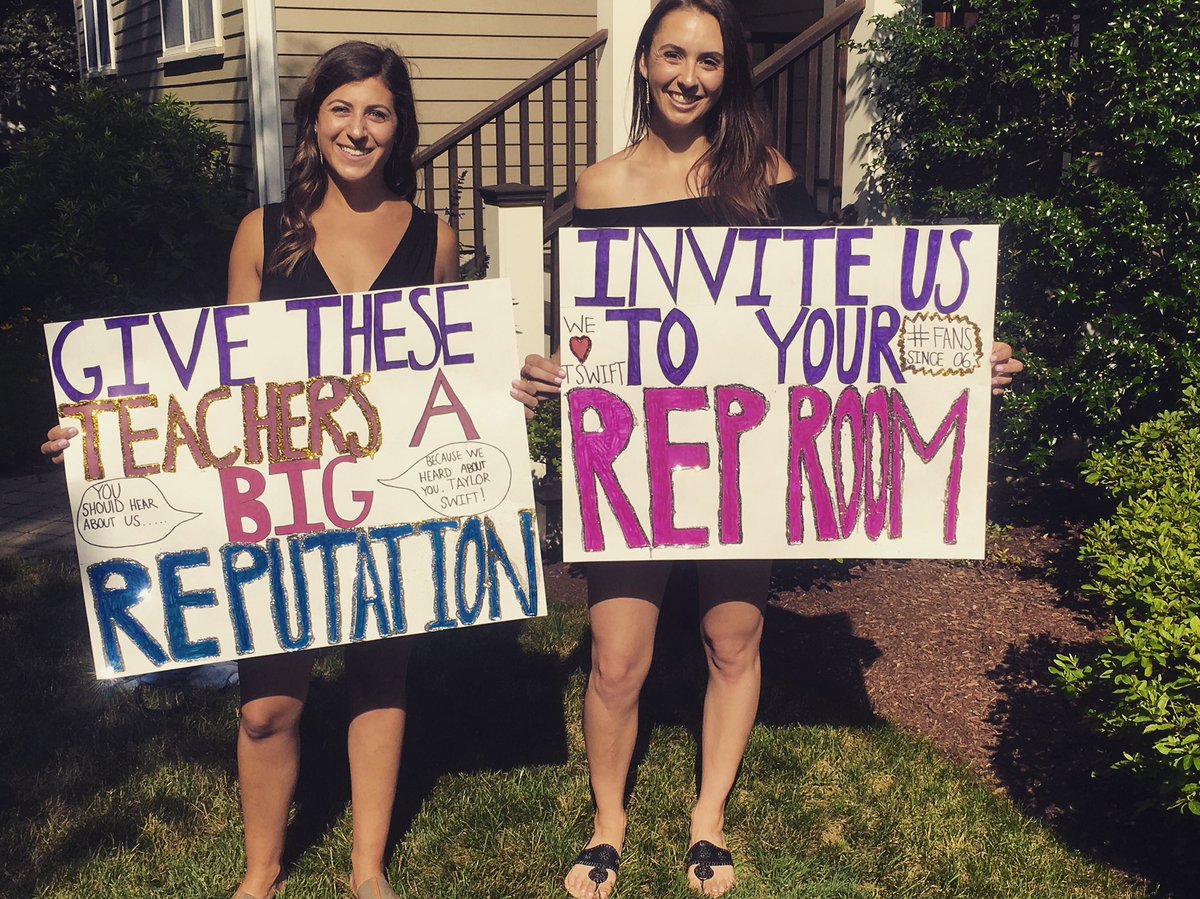 GIVE THESE
TEACHERS A
BIG
YOU
SHOULD HEAR
ABOUT US.....
BECAUSE WE
HEARD ABOUT
YOU, TAYLOR
SWIFT!
REPUTATION
INVITE US
TO YOUR
WE
♥
TSWIFT
#FANS
SINCE 06
REP ROOM